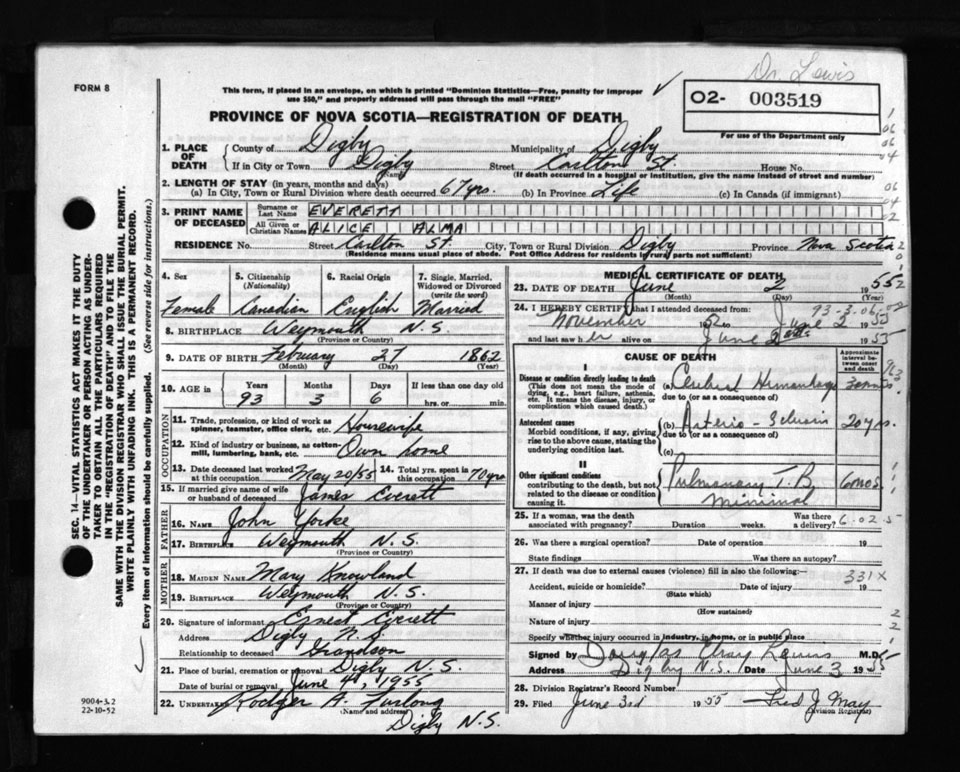 Dr. Lewis
FORM 8
This form, if placed in an envelope, on which is printed "Dominion Statistics—Free, penalty for improper
use $50," and properly addressed will pass through the mail "FREE"
O2- 003519
For use of the Department only
PROVINCE OF NOVA SCOTIA—REGISTRATION OF DEATH
1. PLACE OF DEATH County of Digby Municipality of Digby
If in City or Town Digby (Name) Street Carlton St. House No.
(If death occurred in a hospital or institution, give the name instead of street and number)
2. LENGTH OF STAY (in years, months and days)
(a) In City, Town or Rural Division where death occurred 67 yrs. (b) In Province Life (c) In Canada (if immigrant)
3. PRINT NAME OF DECEASED Surname or Last Name EVERETT
All Given or Christian Names ALICE ALMA
RESIDENCE No. Street Carlton St. City, Town or Rural Division Digby Province Nova Scotia
(Residence means usual place of abode. Post Office Address for residents in rural parts not sufficient)
4. Sex 5. Citizenship (Nationality) 6. Racial Origin 7. Single, Married, Widowed or Divorced (write the word)
Female Canadian English Married
8. BIRTHPLACE Weymouth N.S.
(Province or Country)
9. DATE OF BIRTH February 27 1862
(Month) (Day) (Year)
10. AGE in Years Months Days If less than one day old
93 3 6 hrs. or min.
OCCUPATION
11. Trade, profession, or kind of work as spinner, teamster, office clerk, etc. Housewife
12. Kind of industry or business, as cotton-mill, lumbering, bank, etc. Own home
13. Date deceased last worked at this occupation May 20/55 14. Total yrs. spent in this occupation 70 yrs
15. If married give name of wife or husband of deceased James Everett
FATHER
16. NAME John Yorke
17. BIRTHPLACE Weymouth N.S.
(Province or Country)
MOTHER
18. MAIDEN NAME Mary Knowland
19. BIRTHPLACE Weymouth N.S.
(Province or Country)
20. Signature of informant Ernest Everett
Address Digby N.S.
Relationship to deceased Grandson
21. Place of burial, cremation or removal Digby N.S.
Date of burial or removal June 4, 1955
22. UNDERTAKER Rodger A. Furlong
(Name and address)
Digby N.S.
MEDICAL CERTIFICATE OF DEATH
23. DATE OF DEATH June 2 1955
(Month) (Day) (Year)
24. I HEREBY CERTIFY that I attended deceased from: 93-3-06
November to June 2 1955
and last saw her alive on June 2 1955
CAUSE OF DEATH
Approximate interval between onset and death
I
Disease or condition directly leading to death (a) Cerebral Hemorrhage
(This does not mean the mode of dying, e.g., heart failure, asthenia, etc. It means the disease, injury, or complication which caused death.)
due to (or as a consequence of)
Antecedent causes (b) Arterio-Sclerosis 20 yrs.
Morbid conditions, if any, giving rise to the above cause, stating the underlying condition last.
due to (or as a consequence of)
(c)
II
Other significant conditions Pulmonary T.B. 6 mos.
contributing to the death, but not related to the disease or condition causing it. Minimal
25. If a woman, was the death associated with pregnancy? Duration weeks. Was there a delivery? 6.02.5
26. Was there a surgical operation? Date of operation 19
State findings Was there an autopsy?
27. If death was due to external causes (violence) fill in also the following:— 331X
Accident, suicide or homicide? Date of injury 19
(State which)
Manner of injury
(How sustained)
Nature of injury
Specify whether injury occurred in industry, in home, or in public place
Signed by Douglas Lewis M.D.
Address Digby N.S. Date June 3 1955
28. Division Registrar's Record Number
29. Filed June 3rd 1955 Fred J. May
(Division Registrar)
SEC. 14—VITAL STATISTICS ACT MAKES IT THE DUTY
OF THE UNDERTAKER OR PERSON ACTING AS UNDER-
TAKER TO OBTAIN ALL THE PARTICULARS REQUIRED
IN THE "REGISTRATION OF DEATH" AND TO FILE THE
SAME WITH THE DIVISION REGISTRAR WHO SHALL ISSUE THE BURIAL PERMIT.
WRITE PLAINLY WITH UNFADING INK. THIS IS A PERMANENT RECORD.
Every item of information should be carefully supplied. (See reverse side for instructions.)
9004-3.2
22-10-52